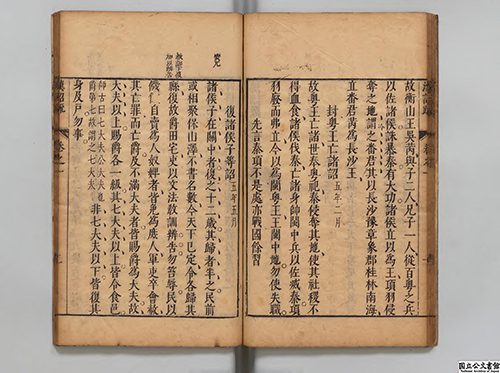 故衡山王吳芮與子二人兄子一人從百粵之兵
以佐諸侯誅暴秦有大功諸侯立以為王項羽侵
奪之地謂之番君其以長沙豫章象郡桂林南海
立番君芮為長沙王
封粵王亡諸詔 五年二月
故粵王亡諸世奉粵祀秦侵奪其地使其社稷不
得血食諸侯伐秦亡諸身帥閩中兵以佐滅秦項
羽廢而弗立今以為閩粵王王閩中地勿使失職
先言秦項不是處亦戰國餘習
復諸侯子等詔 五年五月
諸侯子在關中者復之十二歲其歸者半之民前
或相聚保山澤不書名數今天下已定令各歸其
縣復故爵田宅吏以文法教訓辨告勿笞辱民以
饑餓自賣為人奴婢者皆免為庶人軍吏卒會赦
其亡罪而亡爵及不滿大夫者皆賜爵為大夫故
大夫以上賜爵各一級其七大夫以上皆令食邑
師古曰七大夫公大夫也
爵第七故謂之七大夫
非七大夫以下皆復其
身及戶勿事
卷之一
国立公文書館
National Archives of Japan